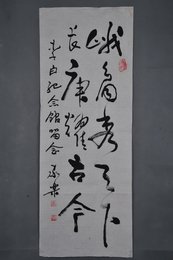 峨眉秀天下
長庚耀古今
李白纪念馆留念